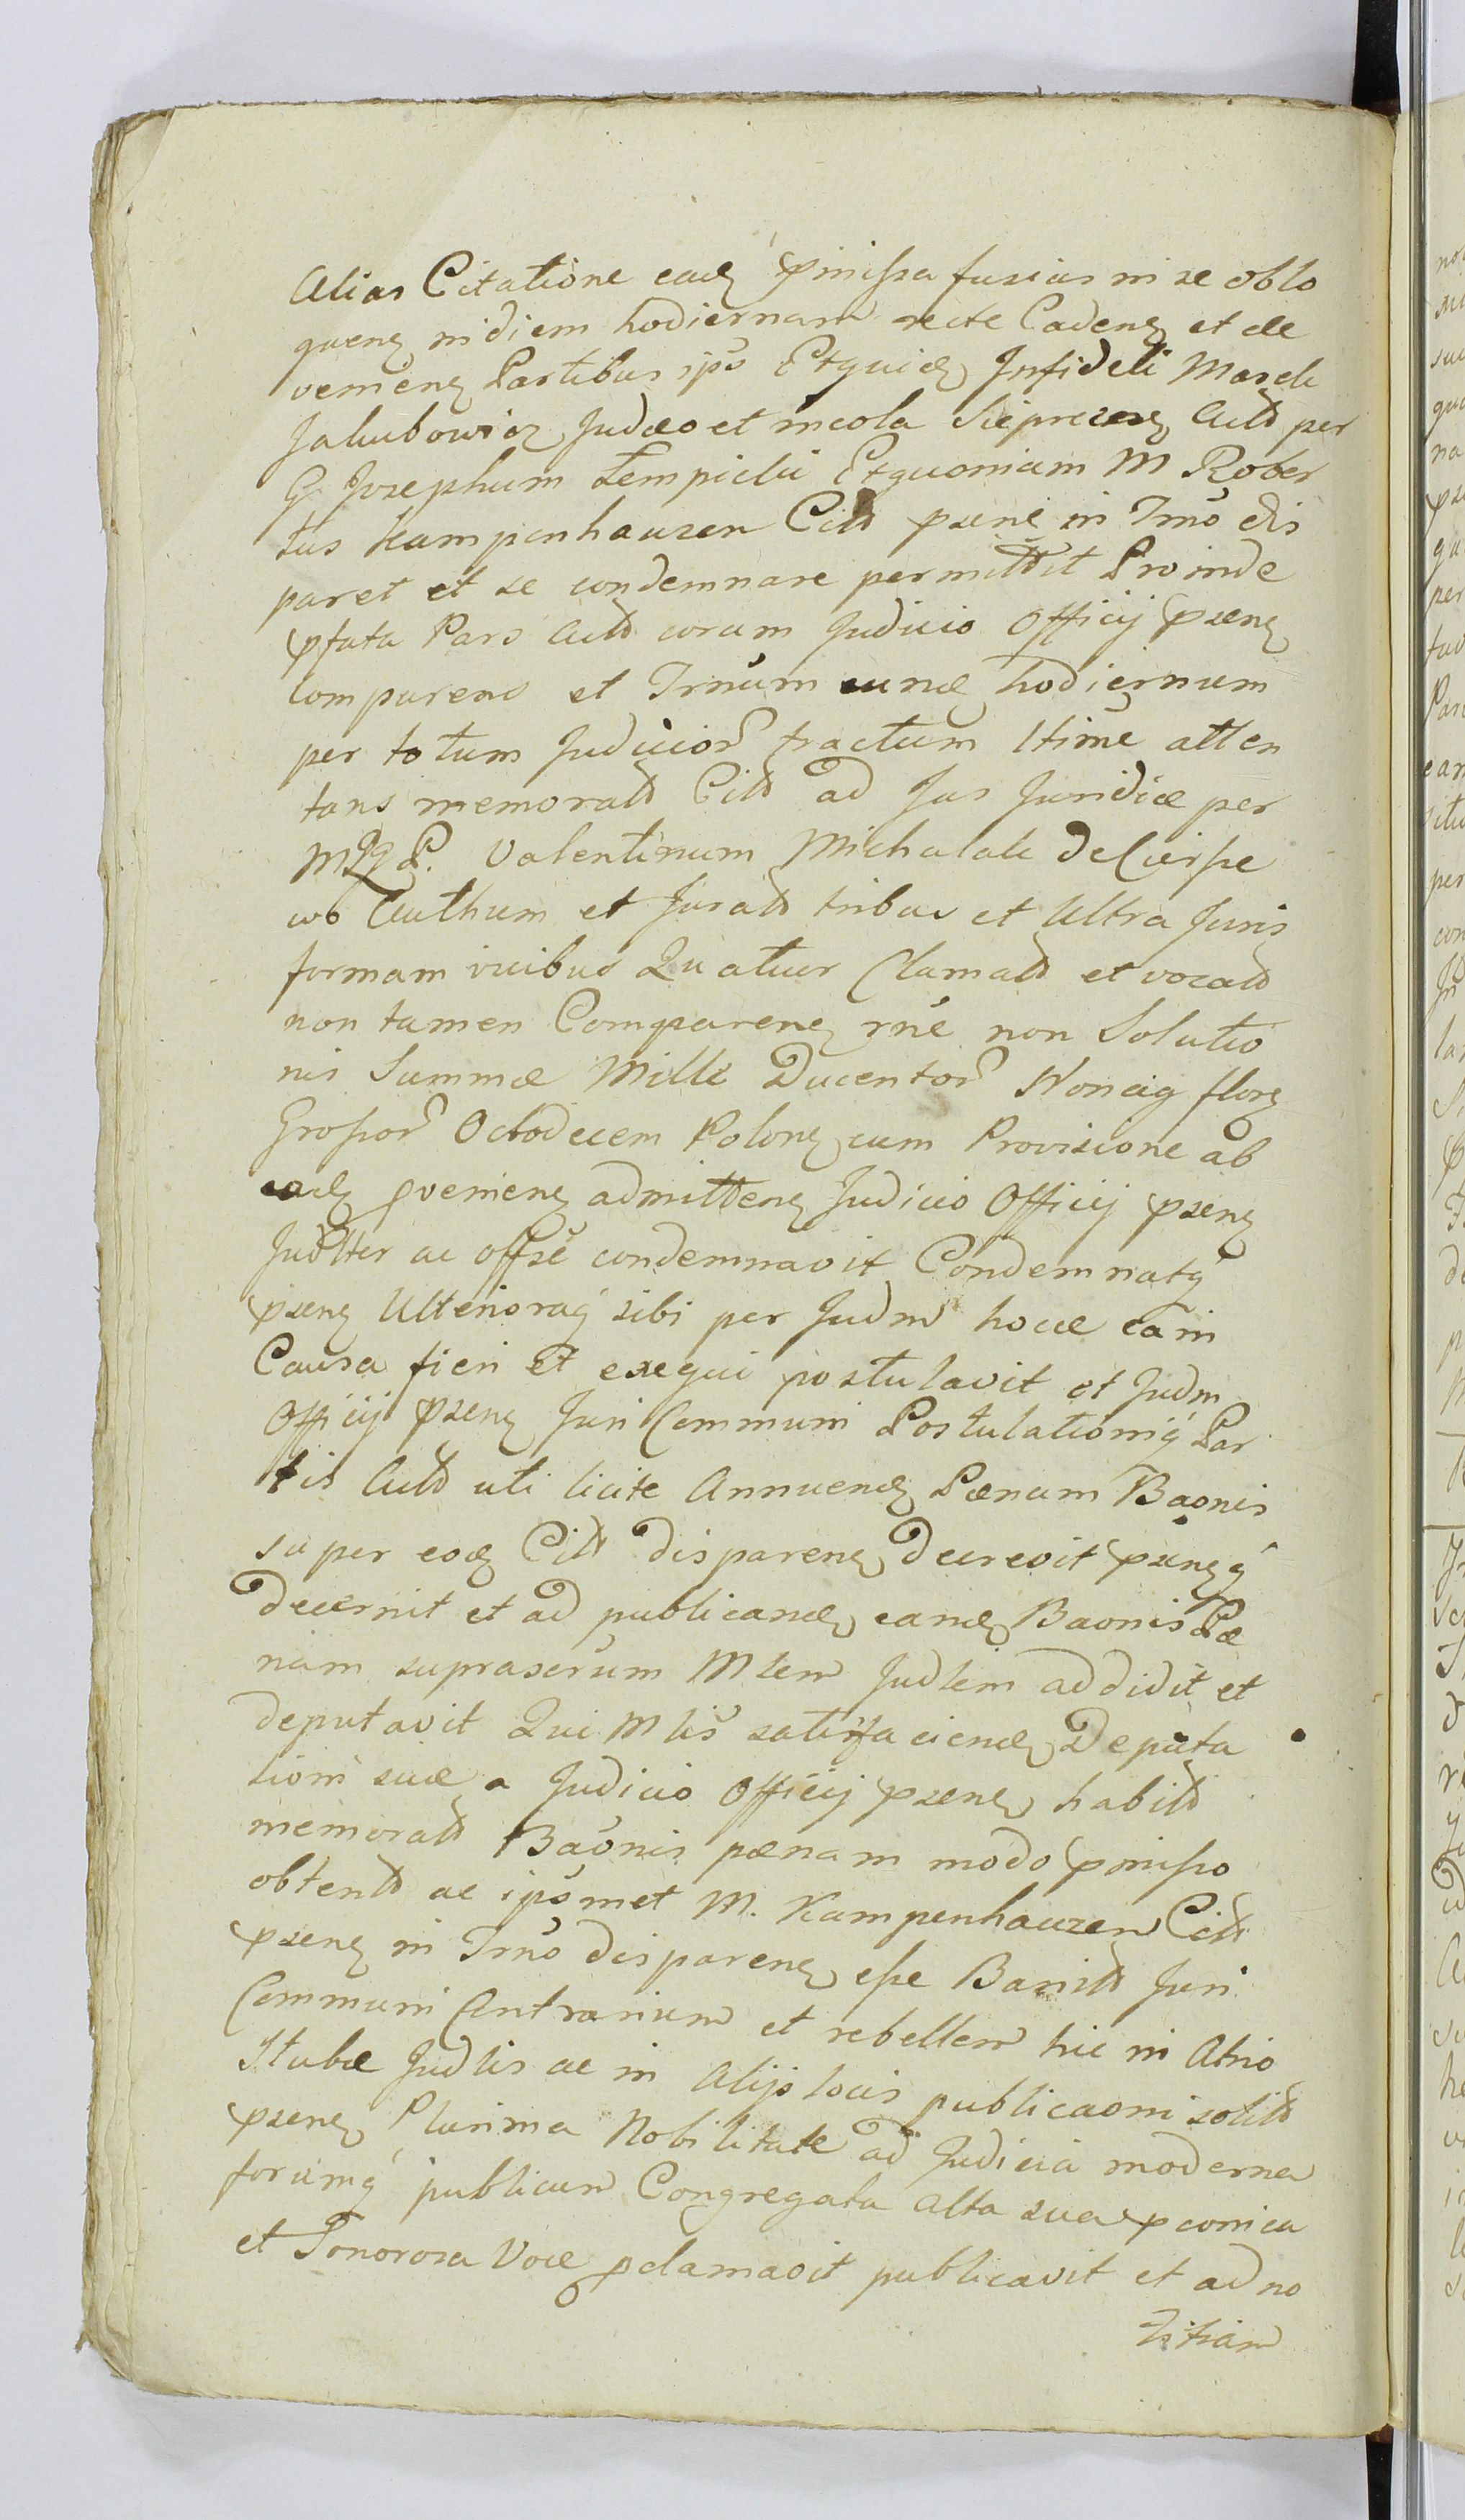 Alias Citatione ead pmissa fusius in se oblo
quen in diem hodiernam recte Caden et de
venien Partibus ips Et quid Infideli Mosek
Jakubowicz Judæo et incola Sieprcen Actt per
G Josephum Łempicki Et quoniam M Rober
tus Kampenhauzen Citt psene in Trno dis
paret et se condemnare permittit Proinde
pfata Pars Actt coram Judicio Officij psen
Comparens et Trnum eund hodiernum
per totum Judicior tractum ltime atten
tans memoratt Citt ad Jus Juridice per
Valentinum Michalak de Cierpe
wo Authum et Juratt tribus et Ultra Juris
formam vicibus Quatuor Clamatt et vocatt
non tamen Comparen rne non Solutio
nis Summæ Mille Ducentor Nonag flor
Grossor Octodecem Polon cum Provisione ab
ead pvenien admitten Judicio Officij psen
Judlter ac offse condemnavit Condemnatq
psen Ulterioraq sibi per Judm hocce ea in
Causa fieri et exequi postulavit et Judm
Officij psen Juri Communi Postulationiq Par
tis Actt uti licite Annuend Pænam Baonis
super eod Citt disparen decrevit psenq
decernit et ad publicand eand Baonis Pæ
nam suprascrum Mlem Judlem addidit et
deputavit Qui Mlis satisfaciend Deputa
tioni suæ a Judicio Officij psen habitt
memoratt Baonis pænam modo pmisso
obtentt ac ipsmet M. Kampenhauzen Citt
psen in Trno disparen esse Banitt Juri
Communi Contrarium et rebellem hic in Atrio
Stubæ Judlis ac in Alijs locis publicaoni solitt
psen Plurima Nobilitate ad Judicia moderna
forumq publicum Congregata alta sua pconica
et Sonorosa Voce pclamavit publicavit et ad no
titiam